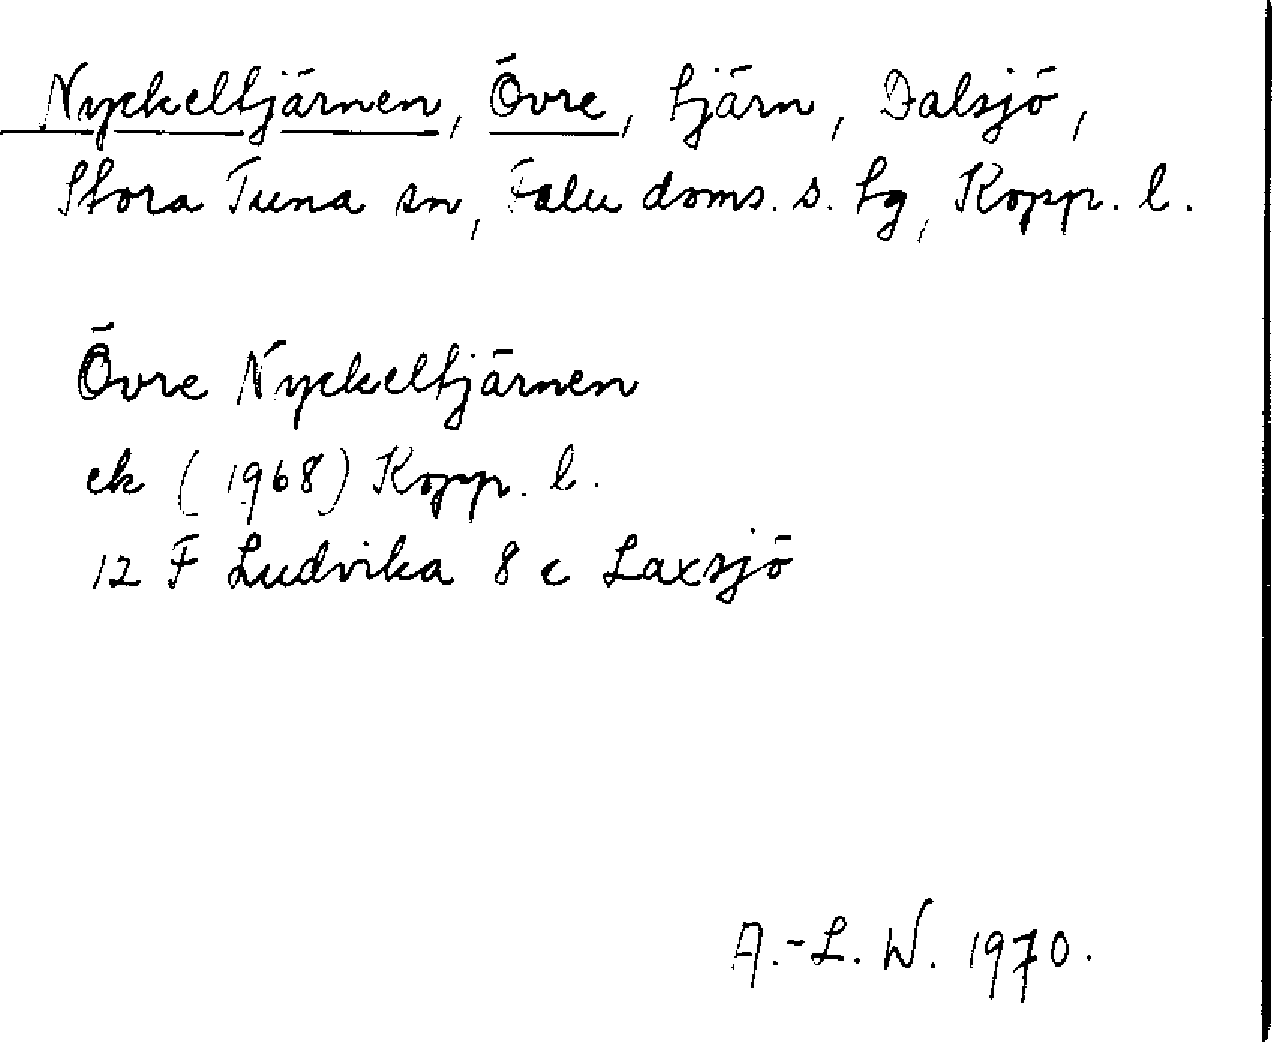 Nyckeltjärnen, Övre, tjärn, Dalsjö,
Stora Tuna sn, Falu doms. s. tg, Kopp. l.
Övre Nyckeltjärnen
ek (1968) Kopp. l.
12 F Ludvika 8 c Laxsjö
A.-L. W. 1970.